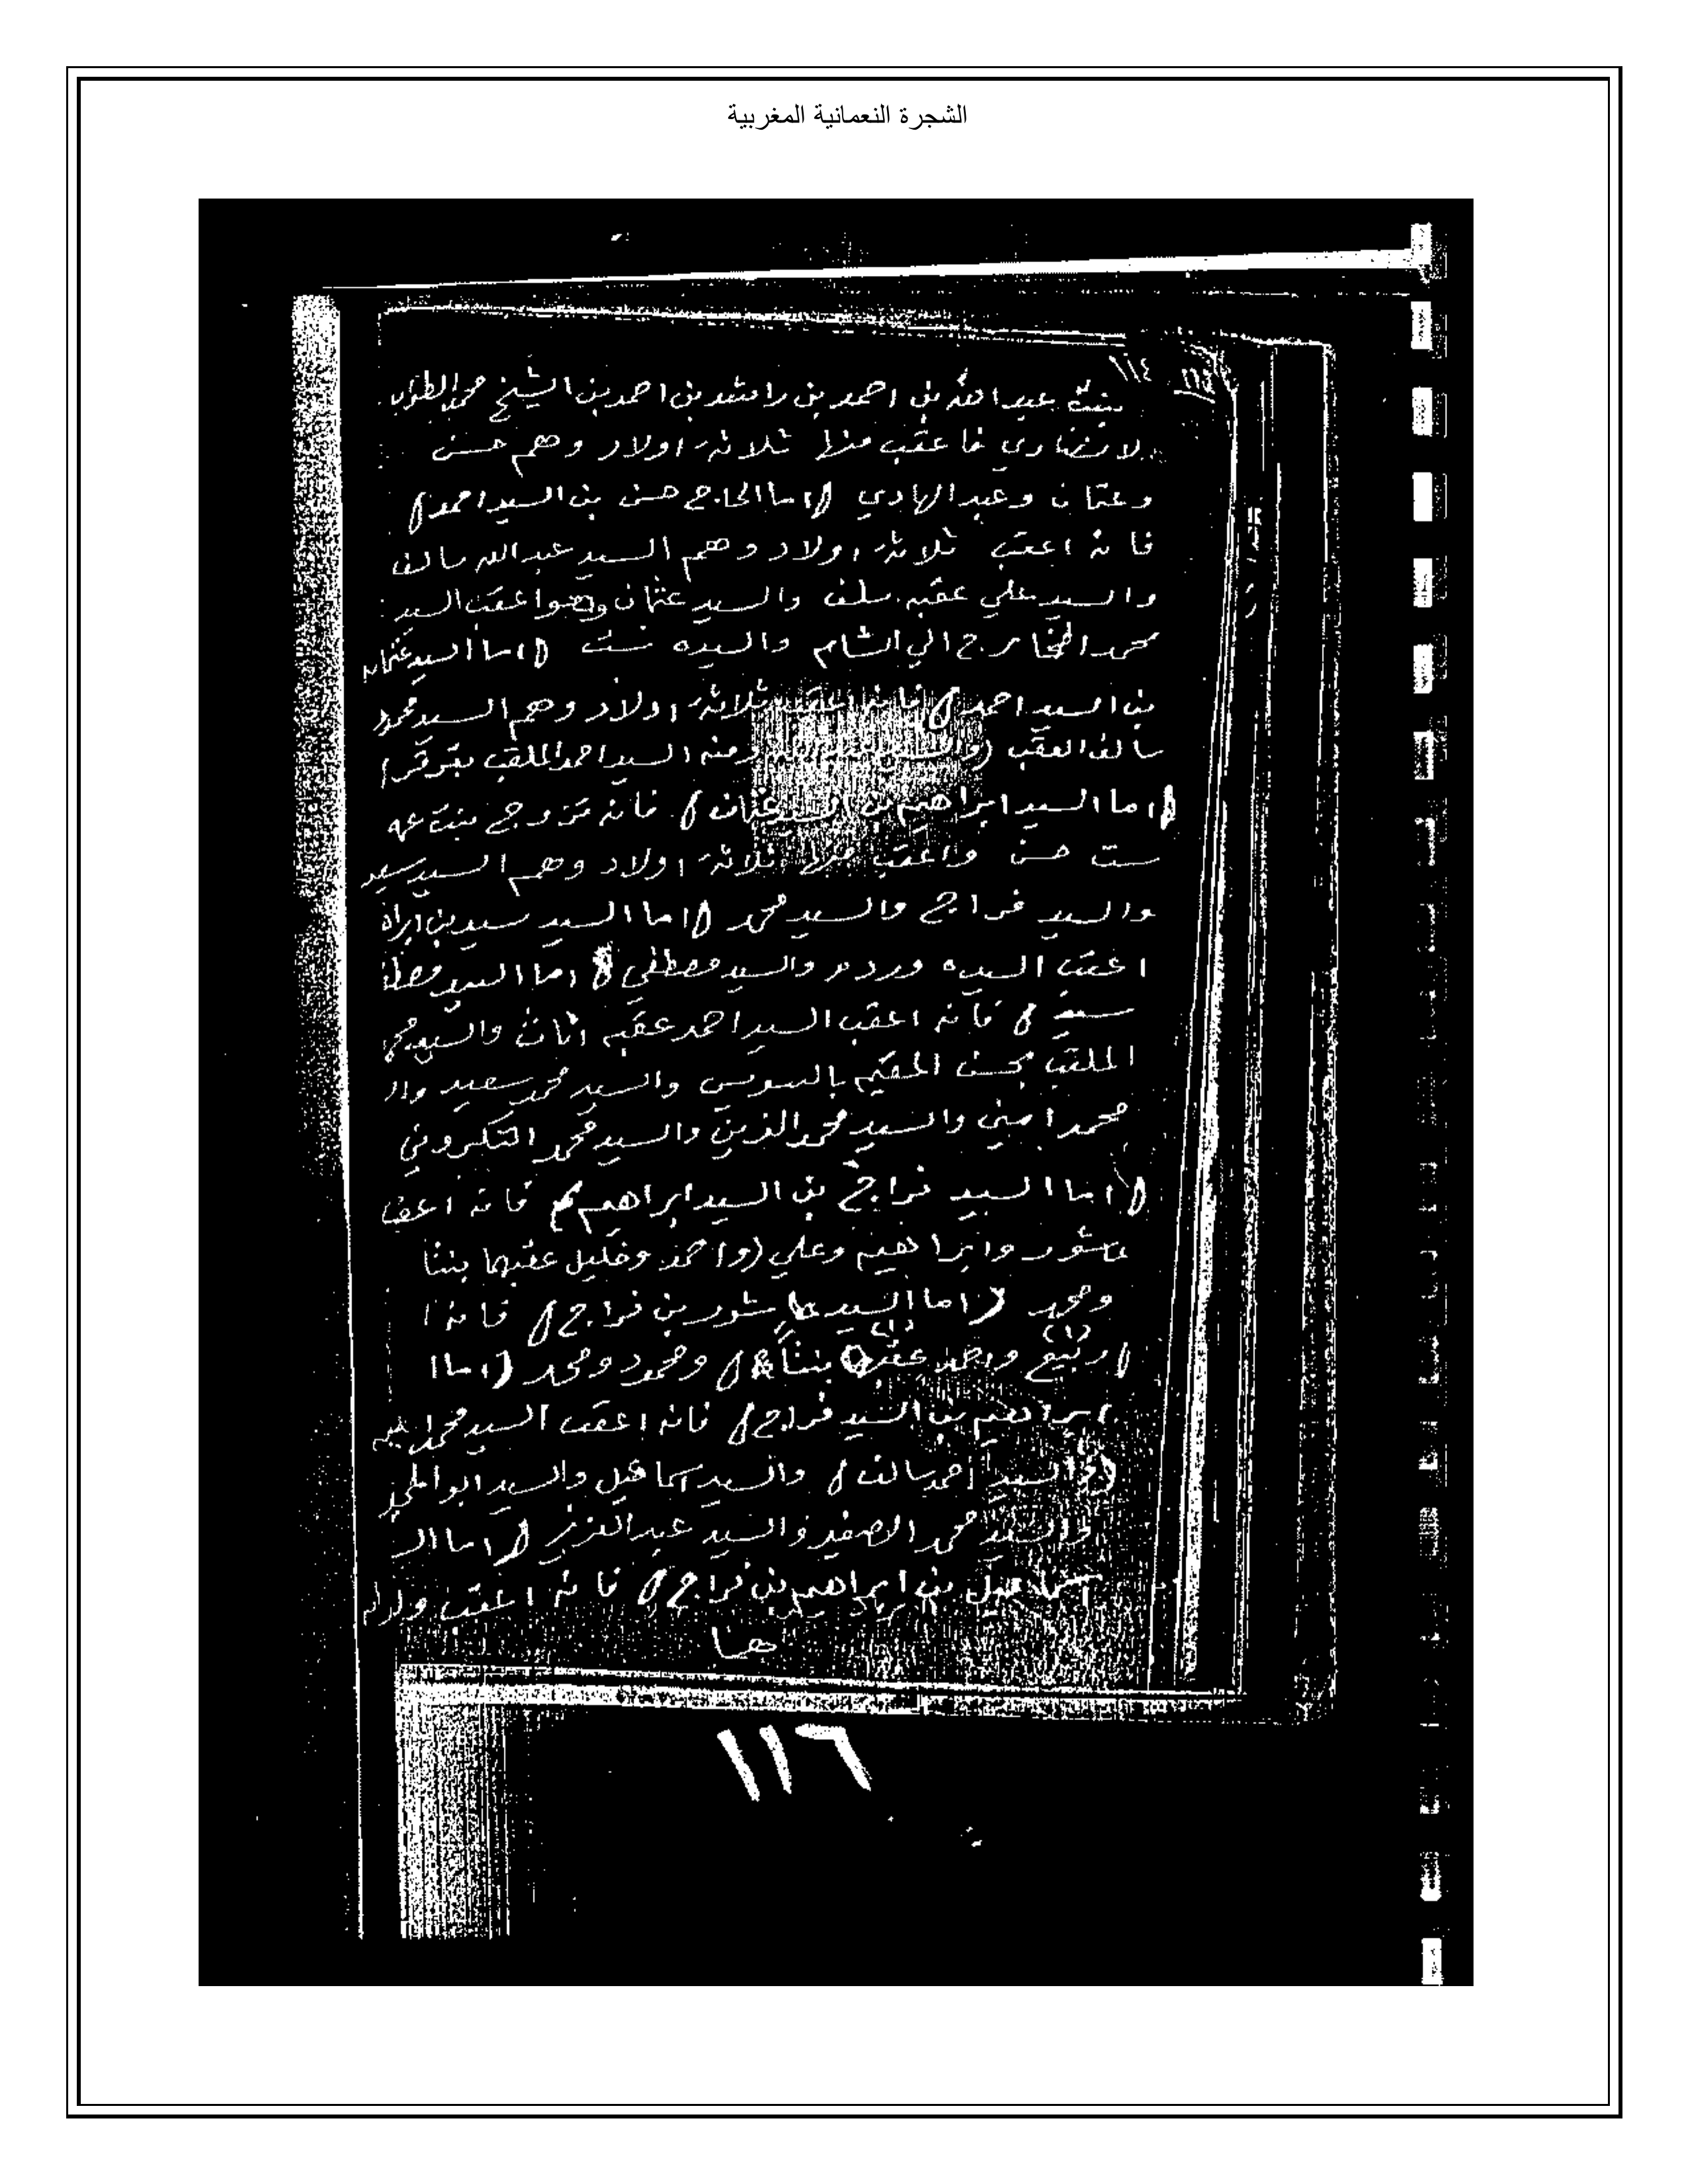 الشجرة النعمانية المغربية
١١٤
بنت عبد الله بن احمد بن راشد بن احمد بن الشيخ محمد
لانصاري فاعقب منها ثلاثة اولاد وهم حسن
وعثمان وعبد الهادي (اما الحاج حسن بن السيد احمد)
فانه اعقب ثلاثة اولاد وهم السيد عبد الله سالف
والسيد علي عقبه سلف والسيد عثمان وهو اعقب السيد
محمد الي الشام والسيده ست (اما السيد عثمان
بن السيد احمد) فانه اعقب ثلاثة اولاد وهم السيد محمد
سالف العقب ومنه السيد احمد الملقب
(اما السيد ابراهيم بن السيد عثمان) فانه تزوج بنت عمه
ست حسن واعقب منها ثلاثة اولاد وهم السيد سيد
والسيد فراج والسيد محمد (اما السيد سيد بن ابراه
اعقب السيده والسيد مصطفي (اما السيد مصطفا
سيد) فانه اعقب السيد احمد عقبه اناث والسيد محمد
الملقب بحسن المقيم بالسويس والسيد محمد سعيد وال
محمد امين والسيد محمد الزين والسيد محمد التكروني
(اما السيد فراج بن السيد ابراهيم) فانه اعقب
عاشور وابراهيم وعلي (واحمد وخليل عقبهما بنتا
ومحمد (اما السيد عاشور بن فراج) فانه ا
ربيع واحمد عقبه بنتا) ومحمود ومحمد (اما ا
ابراهيم بن السيد فراج) فانه اعقب السيد محمد
(والسيد احمد سالف) والسيد سماعيل والسيد ابو المجد
والسيد محمد الصغير والسيد عبد العزيز (اما ال
اسماعيل بن ابراهيم بن فراج) فانه اعقب
هنا
١١٦